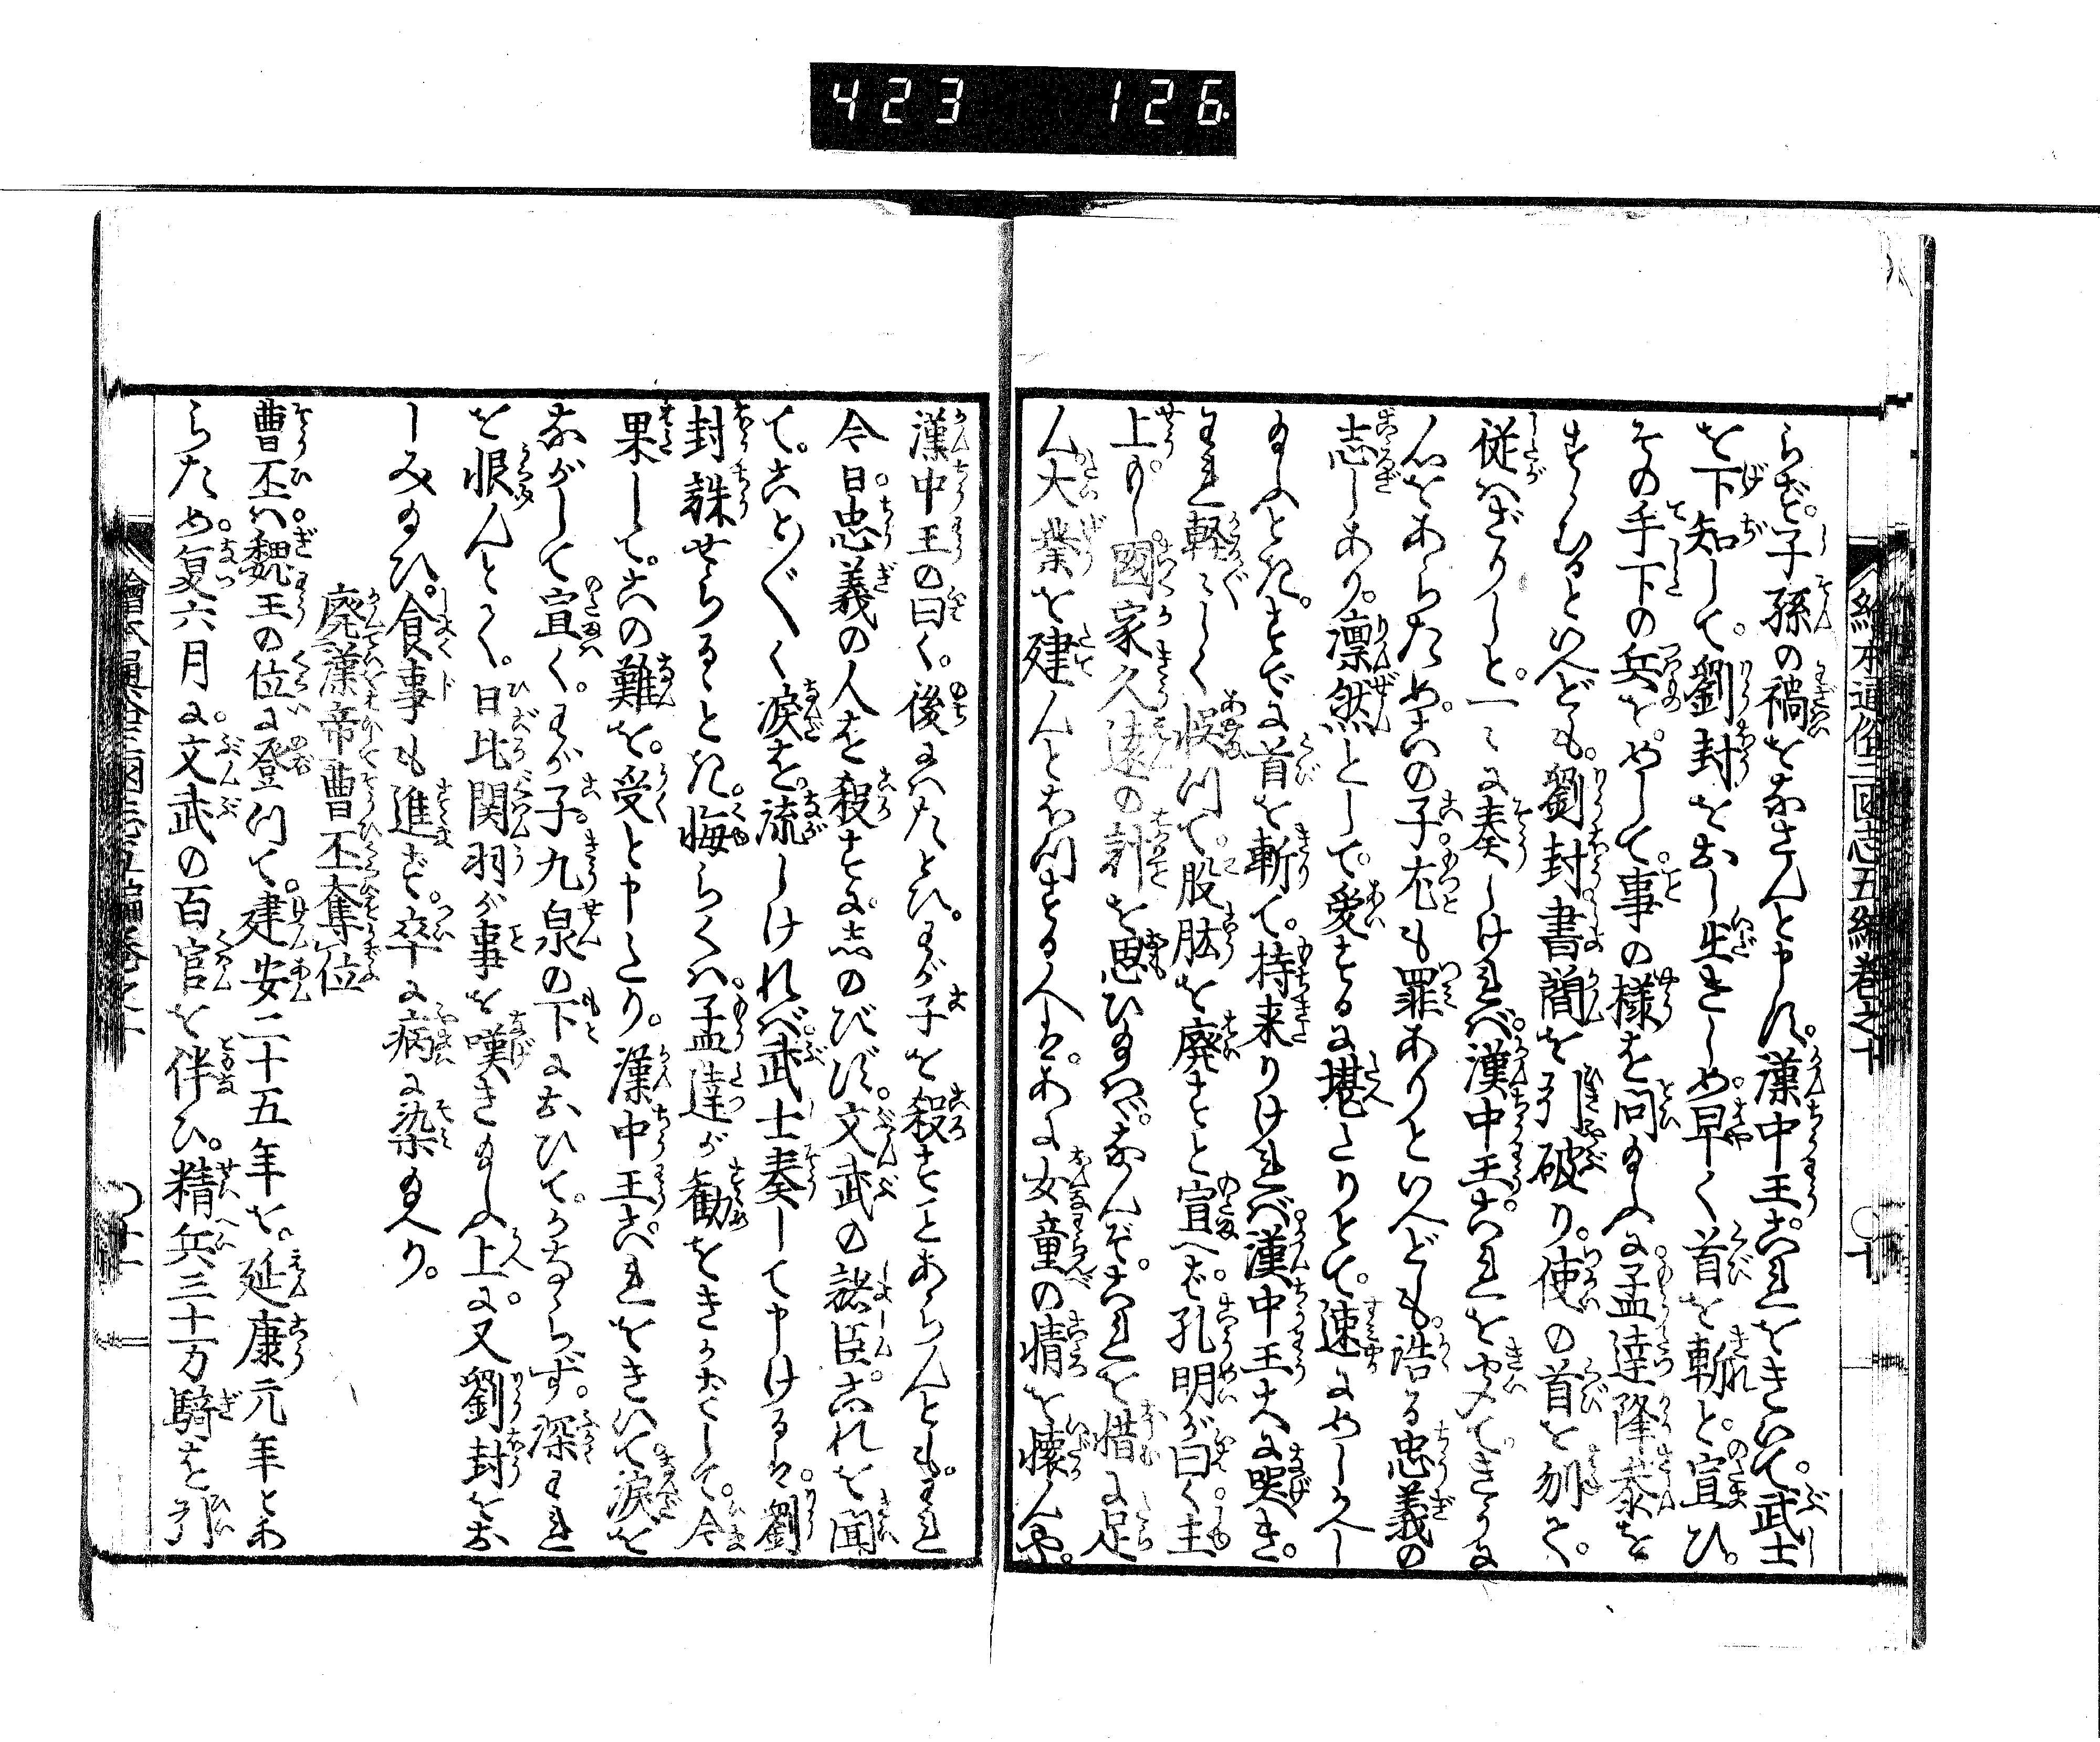 423 126
絵本通俗三國志五編巻之十 〇十
らず子孫の禍をなさんと申す。漢中王これをきいて。武士
を下知して。劉封をおし出さしめ。早く首を斬と。宣ひ。
その手下の兵を。めして。事の様を問給ふに。孟達降参を
すゝむるといへども。劉封書簡を引破り。使の首を刎て。
従はざりしと。一々に奏しければ。漢中王これを聞て。きうに
人をあらためこの子尤も罪ありといへども。誥る忠義の
志しあり。凛然として。愛するに堪たりとて。速にめしかへし
給へとき。すでに首を斬て。持来りければ。漢中王大に哭き。
われ軽々しく悞つて。股肱を廃すと宣へば。孔明が曰く主
上もし國家久遠の計を思ひ給はゞ。なんぞこれを惜に足
ん大業を建んとおつする人は。あに女童の情を懐んや。
漢中王の曰く。後にはたとひ。わが子を殺すことあらんとも。われ
今日。忠義の人を殺すに。志のびず。文武の諸臣。これを聞
て。こと〴〵く涙を。流しければ。武士奏して申けるは。劉
封誅せらるゝとき。悔らくは。孟達が勧をきかずして。今
果して。この難を。受と申たり。漢中王これをきいて。涙を
ながして宣く。わが子。九泉の下におひて。かならず。深くわれ
を恨んとかく。日比関羽が事を嘆き給ふ上に。又劉封をお
しみ給ひ。食事も進ず。卒に病に染給へり。
廃漢帝曹丕奪位
曹丕は。魏王の位に登つて。建安二十五年を。延康元年とあ
らため。夏六月に。文武の百官を伴ひ。精兵三十万騎を引